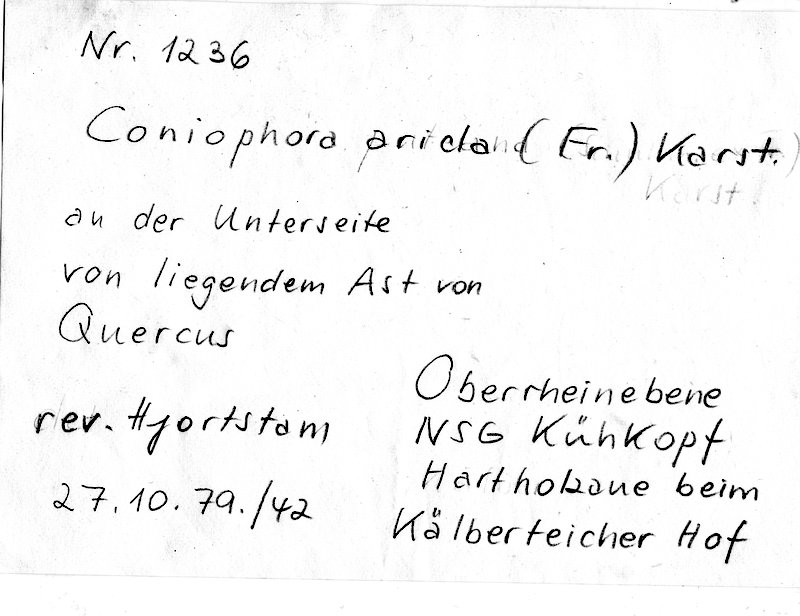 Nr. 1236
Coniophora arida (Fr.) Karst.
Karst.
an der Unterseite
von liegendem Ast von
Quercus
rev. Hjortstam
27.10.79./42
Oberrheinebene
NSG Kühkopf
Hartholzaue beim
Kälberteicher Hof